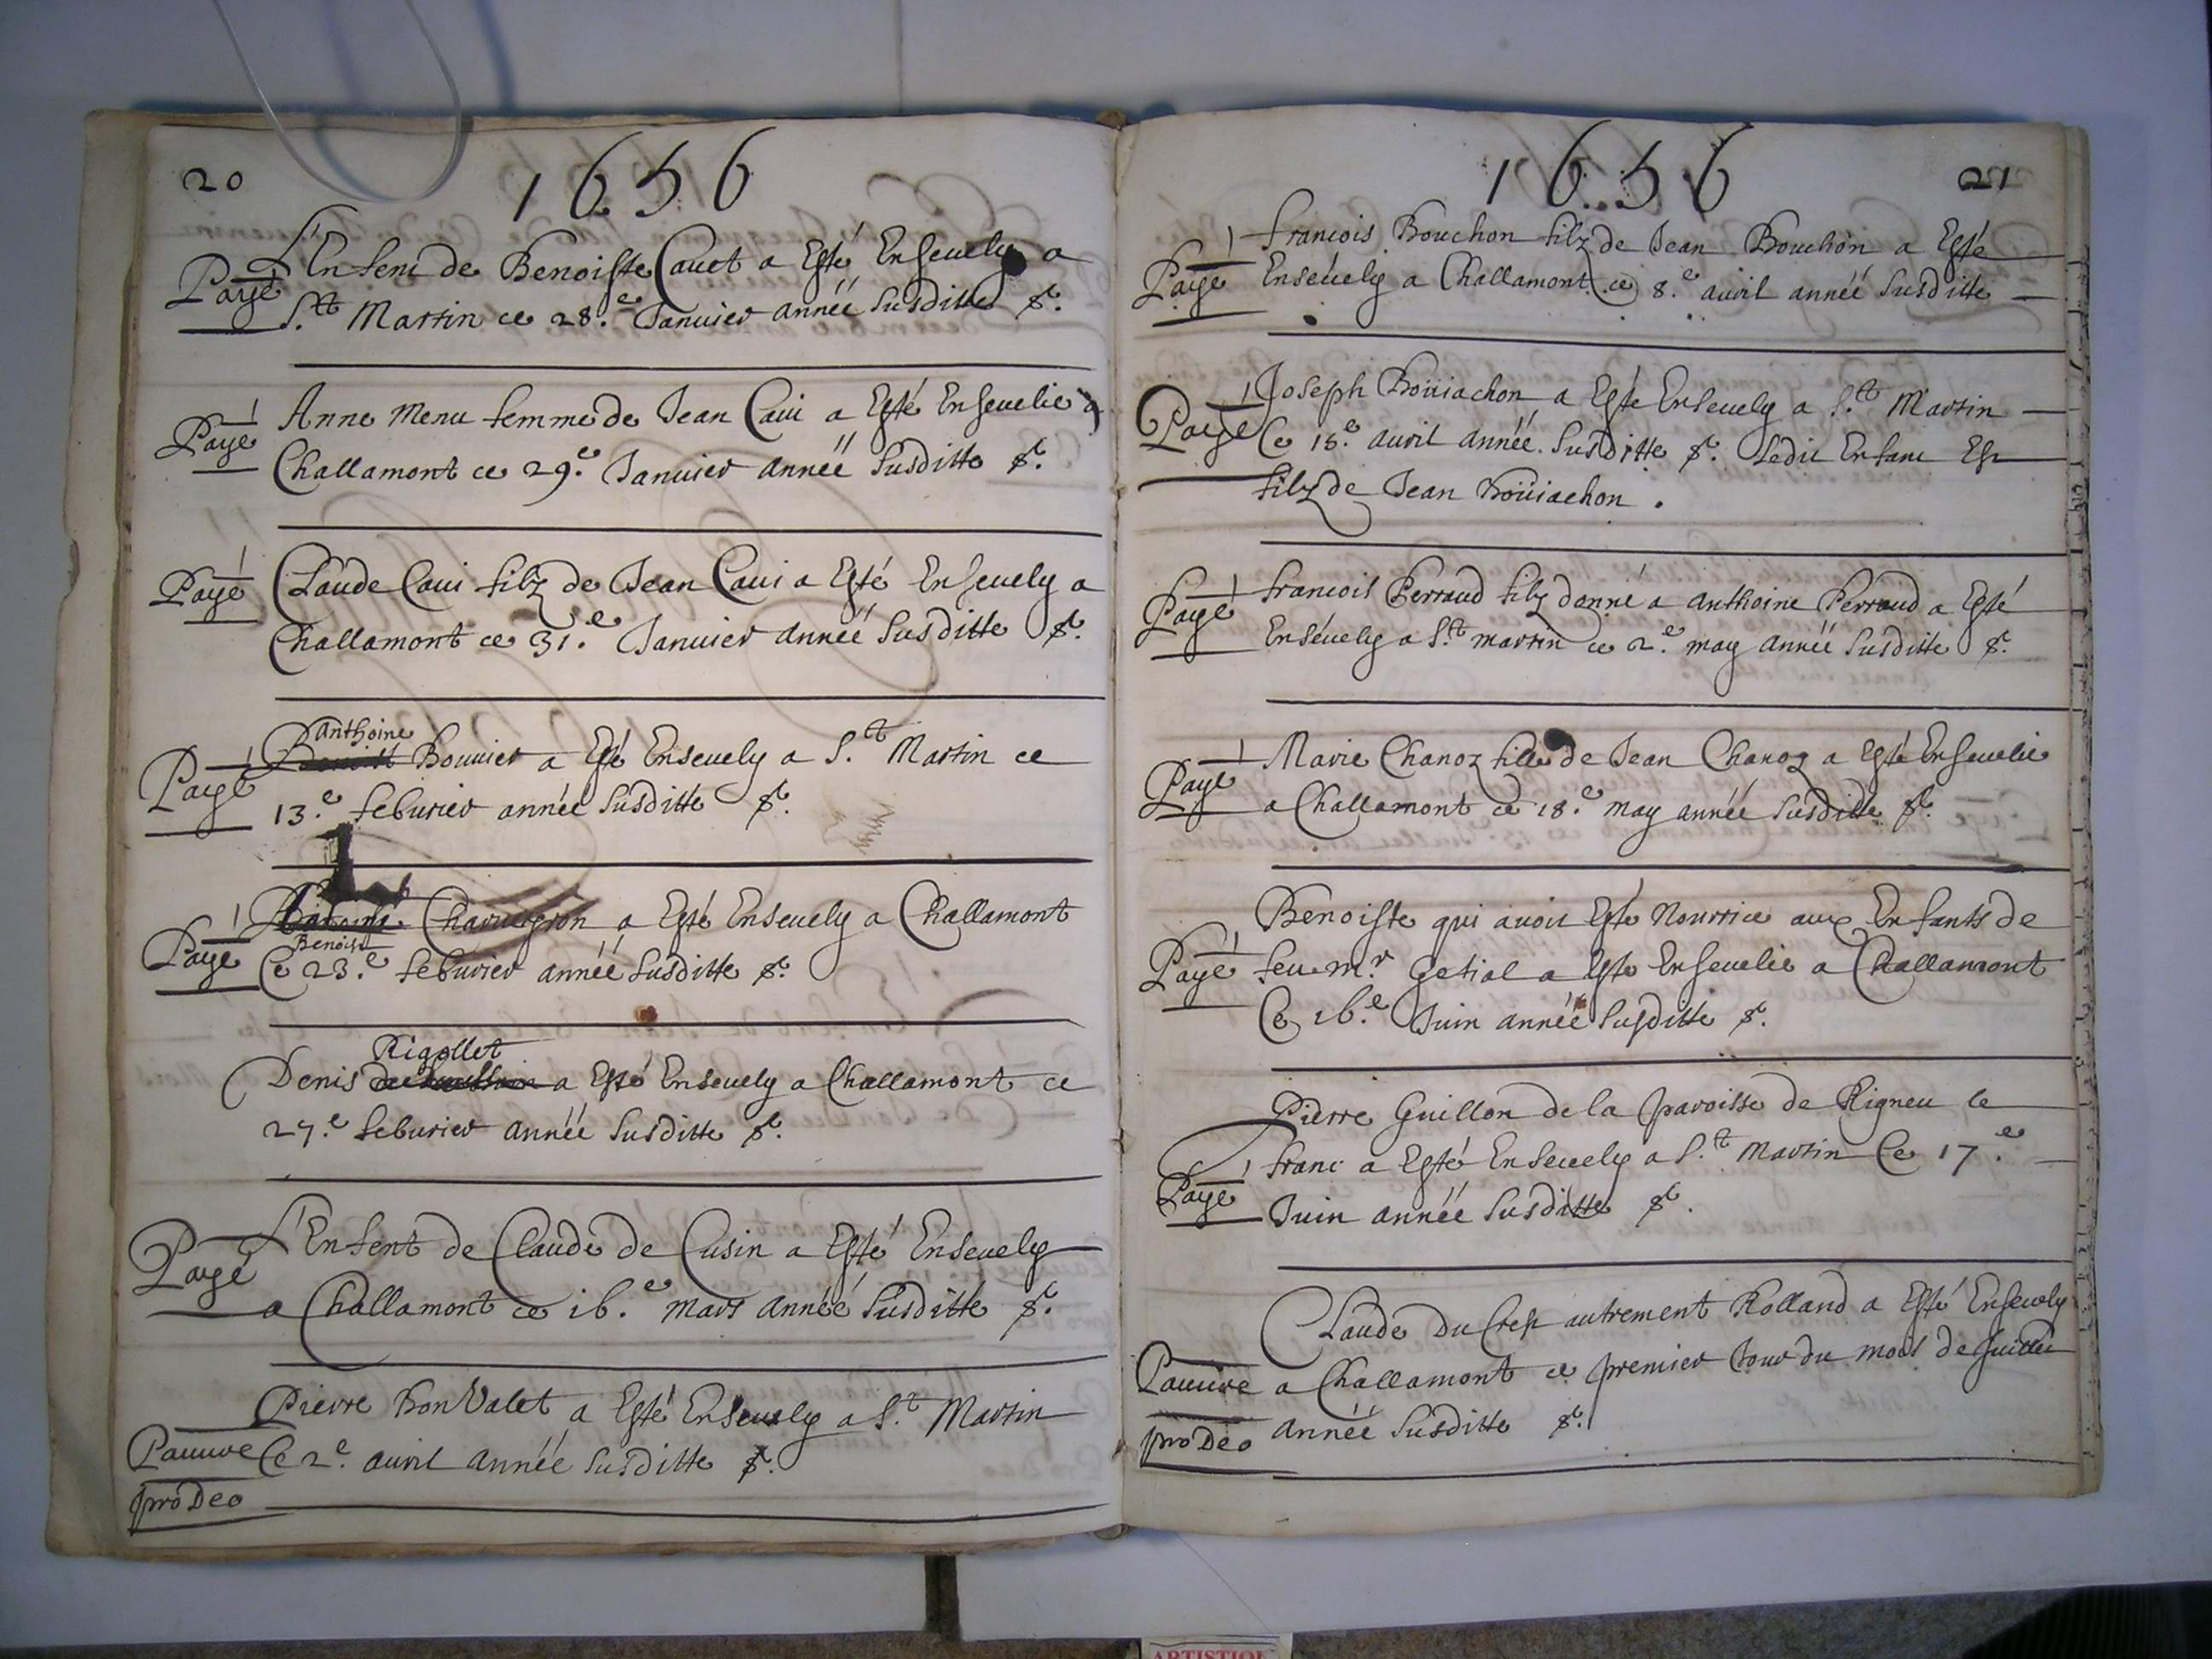 20
1656
L'Enfent de Benoiste Cavet a Esté Ensevely a
Payé
S.tt Martin ce 28.e Janvier année susditte &.
Anne Menu femme de Jean Cavi a Esté Ensevelie a
Payé
Challamont ce 29.e Janvier année susditte &.
Payé
Claude Cavi filz de Jean Cavi a Esté Ensevely a
Challamont ce 31.e Janvier année susditte &.
Anthoine
Payé
Benoist Bouvier a Esté Ensevely a S.tt Martin ce
13.e feburier année susditte &.
Chavueyron a Esté Ensevely a Challamont
Benoist
Payé
Ce 23.e feburier année susditte &.
Rigollet
Denis a Esté Ensevely a Challamont ce
27.e feburier année susditte &.
L'Enfent de Claude de Cusin a Esté Ensevely
Payé
a Challamont ce 16.e mars année susditte &.
Pierre bon Valet a Esté Ensevely a S.t Martin
Pauure
Ce 2.e avril année susditte &.
pro Deo
1656
21
francois Bouchon filz de Jean Bouchon a Esté
Payé
Ensévely a Challamont ce 8.e avril année susditte
Joseph Boüiachon a Esté Ensevely a S.tt Martin
Payé
Ce 18.e avril année susditte &. Ledit Enfant Est
filz de Jean boüiachon.
francois Perraud filz donné a anthoine Perraud a Esté
Payé
Ensévely a S.tt martin ce 2.e may année susditte &.
Marie Chanoz fille de Jean Chanoz a Esté Ensevelie
Payé
a Challamont ce 18.e may année susditte &.
Benoiste qui avoit Esté Nourrice aux Enfants de
Payé
feu m.r Getial a Esté Ensevelie a Challamont
Ce 16.e Juin année susditte &.
Pierre Guillon de la paroisse de Rigneu le
franc a Esté Ensevely a S.tt Martin Ce 17.e
Payé
Juin année susditte &.
Claude Du Crest autrement Rolland a Esté Ensevely
Pauure
a Challamont ce premier Jour du mois de Juillet
pro Deo
année susditte &.